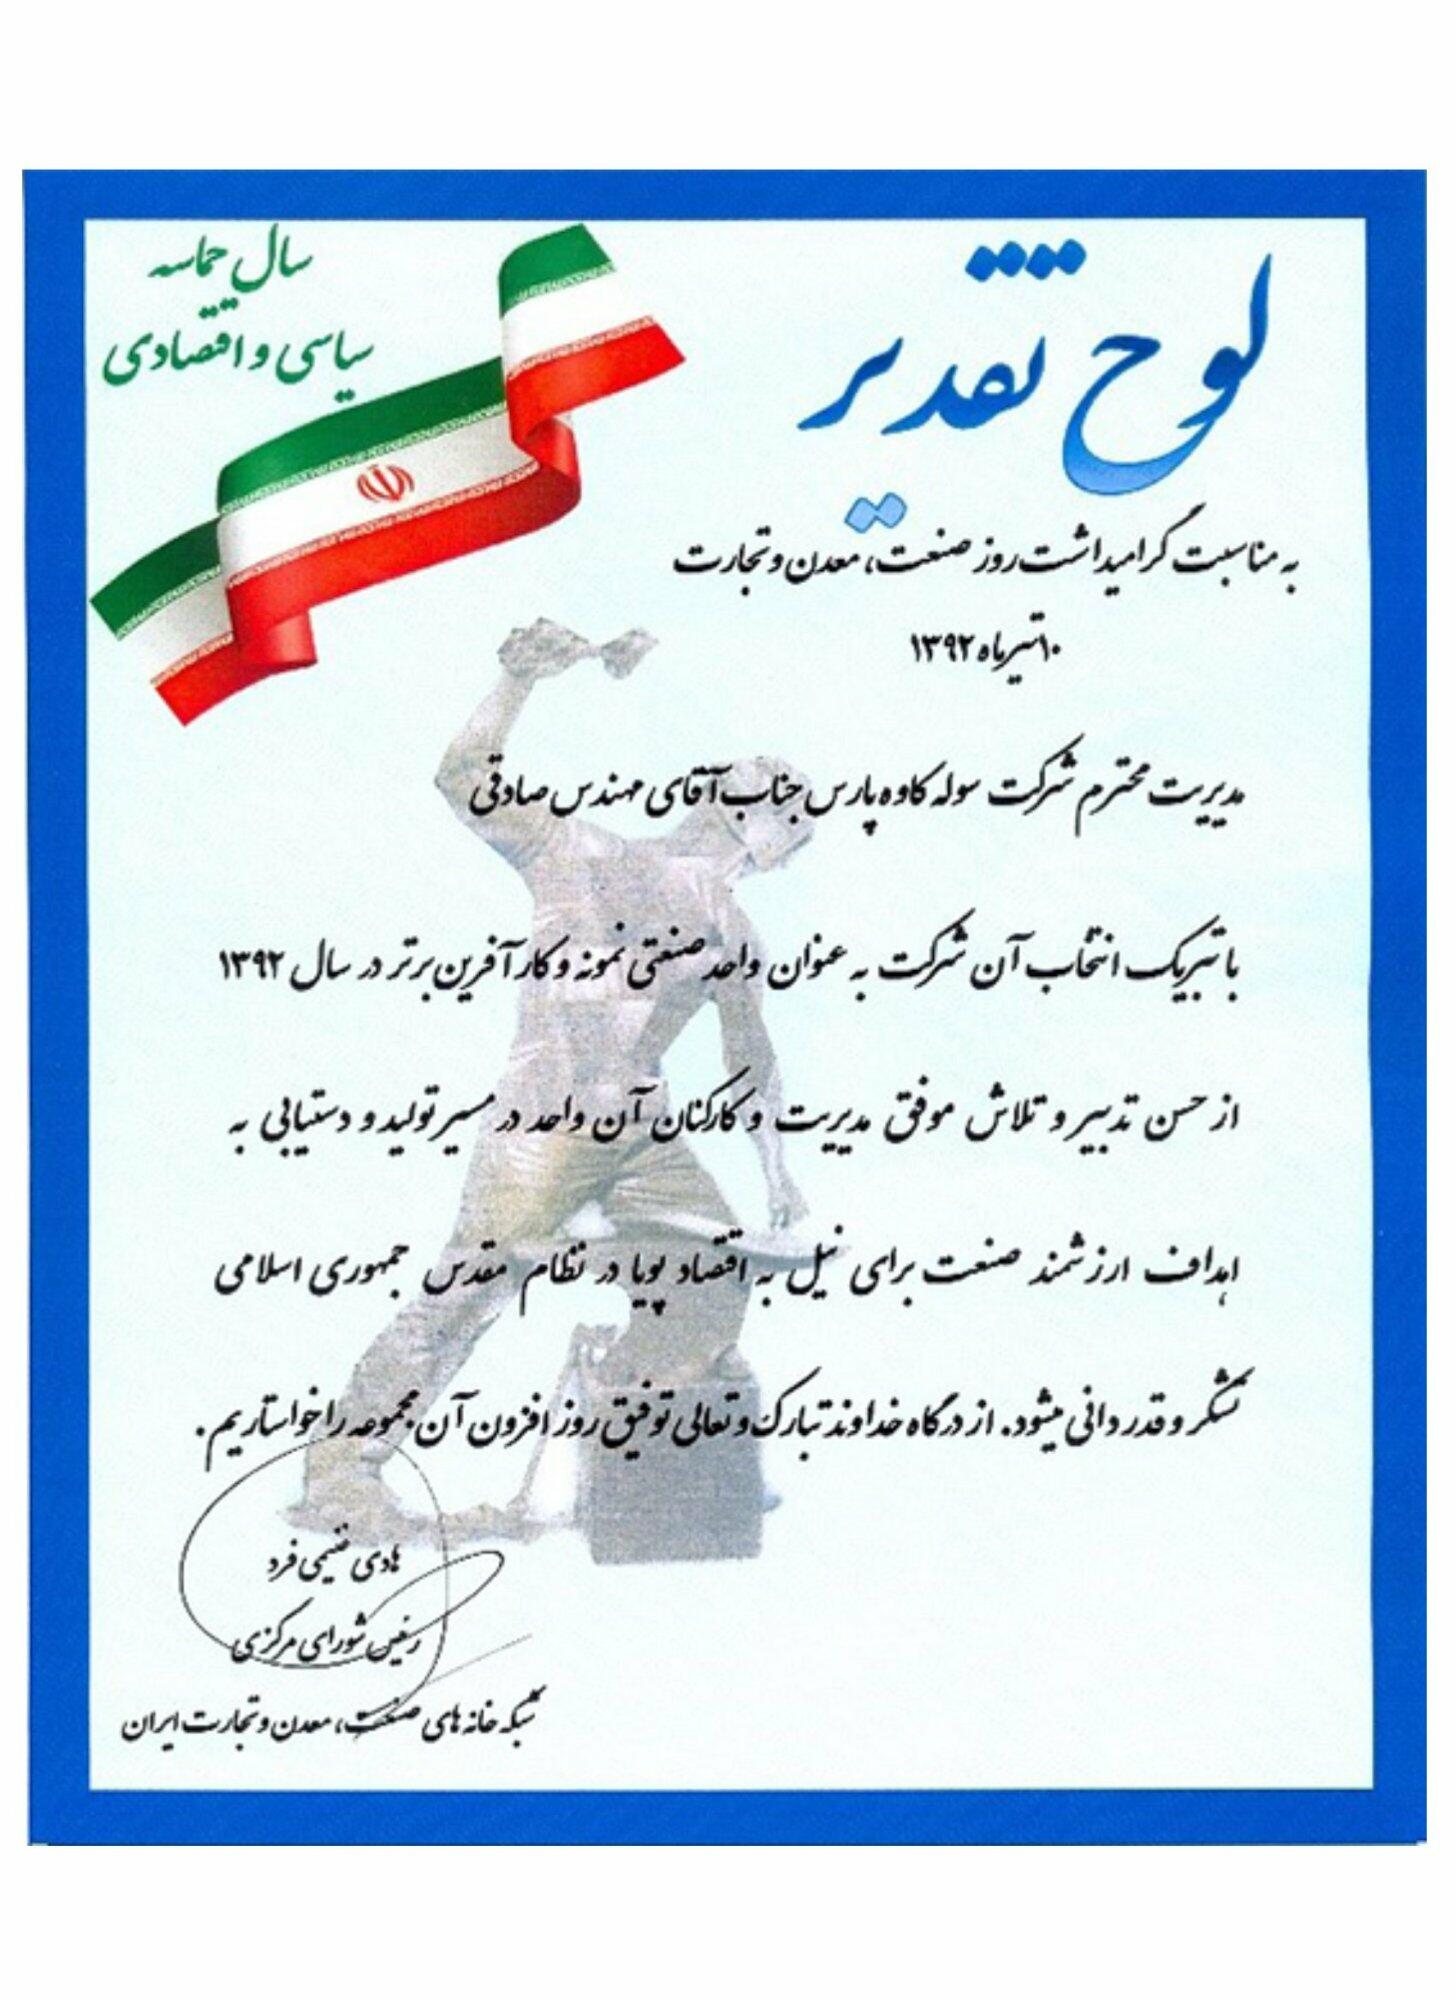 لوح تقدیر
سال حماسه
سیاسی و اقتصادی
به مناسبت گرامیداشت روز صنعت، معدن و تجارت
۱۰ تیرماه ۱۳۹۲
مدیریت محترم شرکت سوله کاوه پارس جناب آقای مهندس صادقی
با تبریک انتخاب آن شرکت به عنوان واحد صنعتی نمونه و کارآفرین برتر در سال ۱۳۹۲
از حسن تدبیر و تلاش موفق مدیریت و کارکنان آن واحد در مسیر تولید و دستیابی به
اهداف ارزشمند صنعت برای نیل به اقتصاد پویا در نظام مقدس جمهوری اسلامی
تشکر و قدردانی میشود. از درگاه خداوند تبارک و تعالی توفیق روز افزون آن مجموعه را خواستاریم.
هادی غنیمی فرد
رئیس شورای مرکزی
شبکه خانه های صنعت، معدن و تجارت ایران